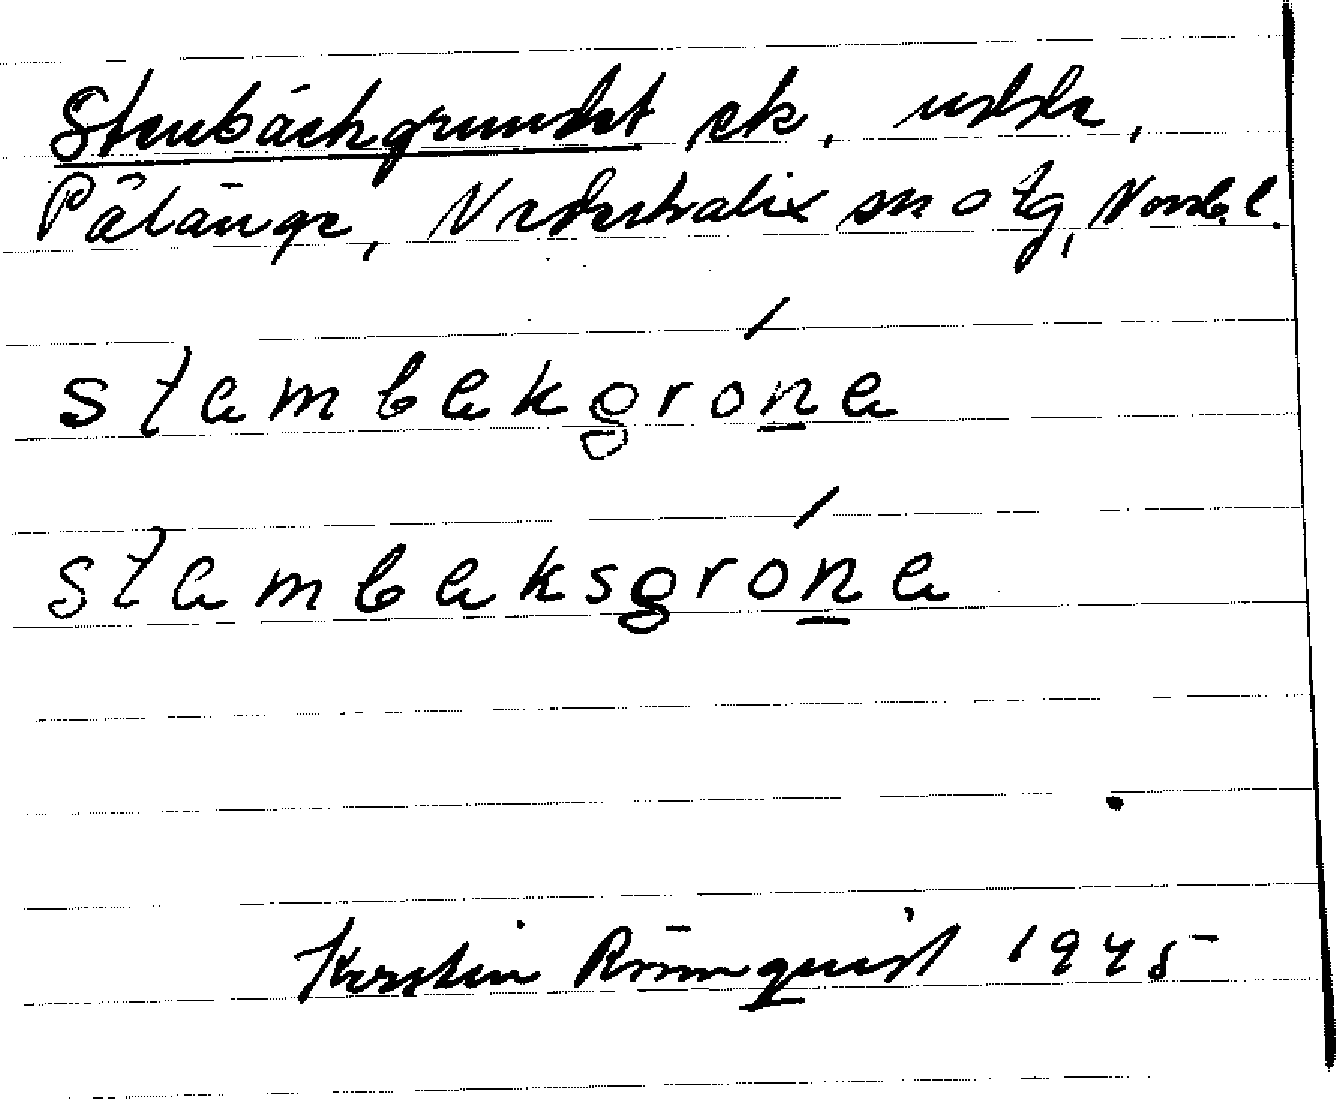 Stenbäckgrundet ek, udde,
Pålänge, Nederkalix sn o tg, Nordb. l.
stambakgróna
stambaksgróna
Kerstin Rönnquist 1945